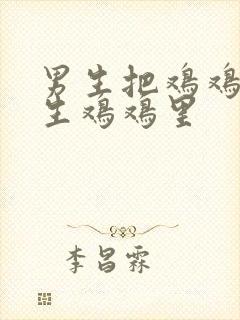 男生把鸡鸡
生鸡鸡里
李昌霖